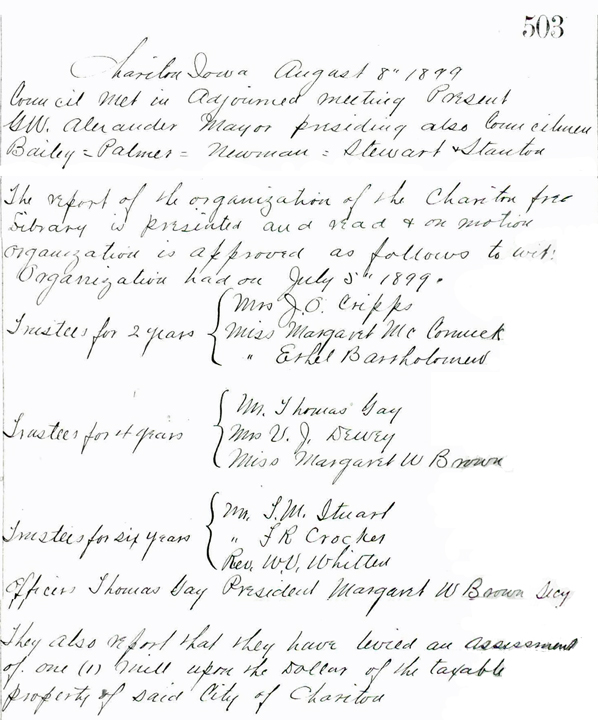 503
Chariton Iowa August 8" 1899
Council met in Adjourned meeting Present
G.W. Alexander Mayor presiding also Councilmen
Bailey = Palmer = Newman = Stewart & Stanton
The report of the organization of the Chariton free
Library is presented and read & on motion
organization is approved as follows to wit:
Organization had on July 5" 1899.
Mrs J.O. Cripps
Trustees for 2 years Miss Margaret McCormick
" Ethel Bartholomew
Mr. Thomas Gay
Trustees for 4 years Mrs V. J. Dewey
Miss Margaret W Brown
Mr. T.M. Stuart
Trustees for six years " F R Crocker
Rev. W.V. Whitten
Officers Thomas Gay President Margaret W Brown Secy
They also report that they have levied an assessment
of one (1) mill upon the Dollar of the taxable
property of said City of Chariton